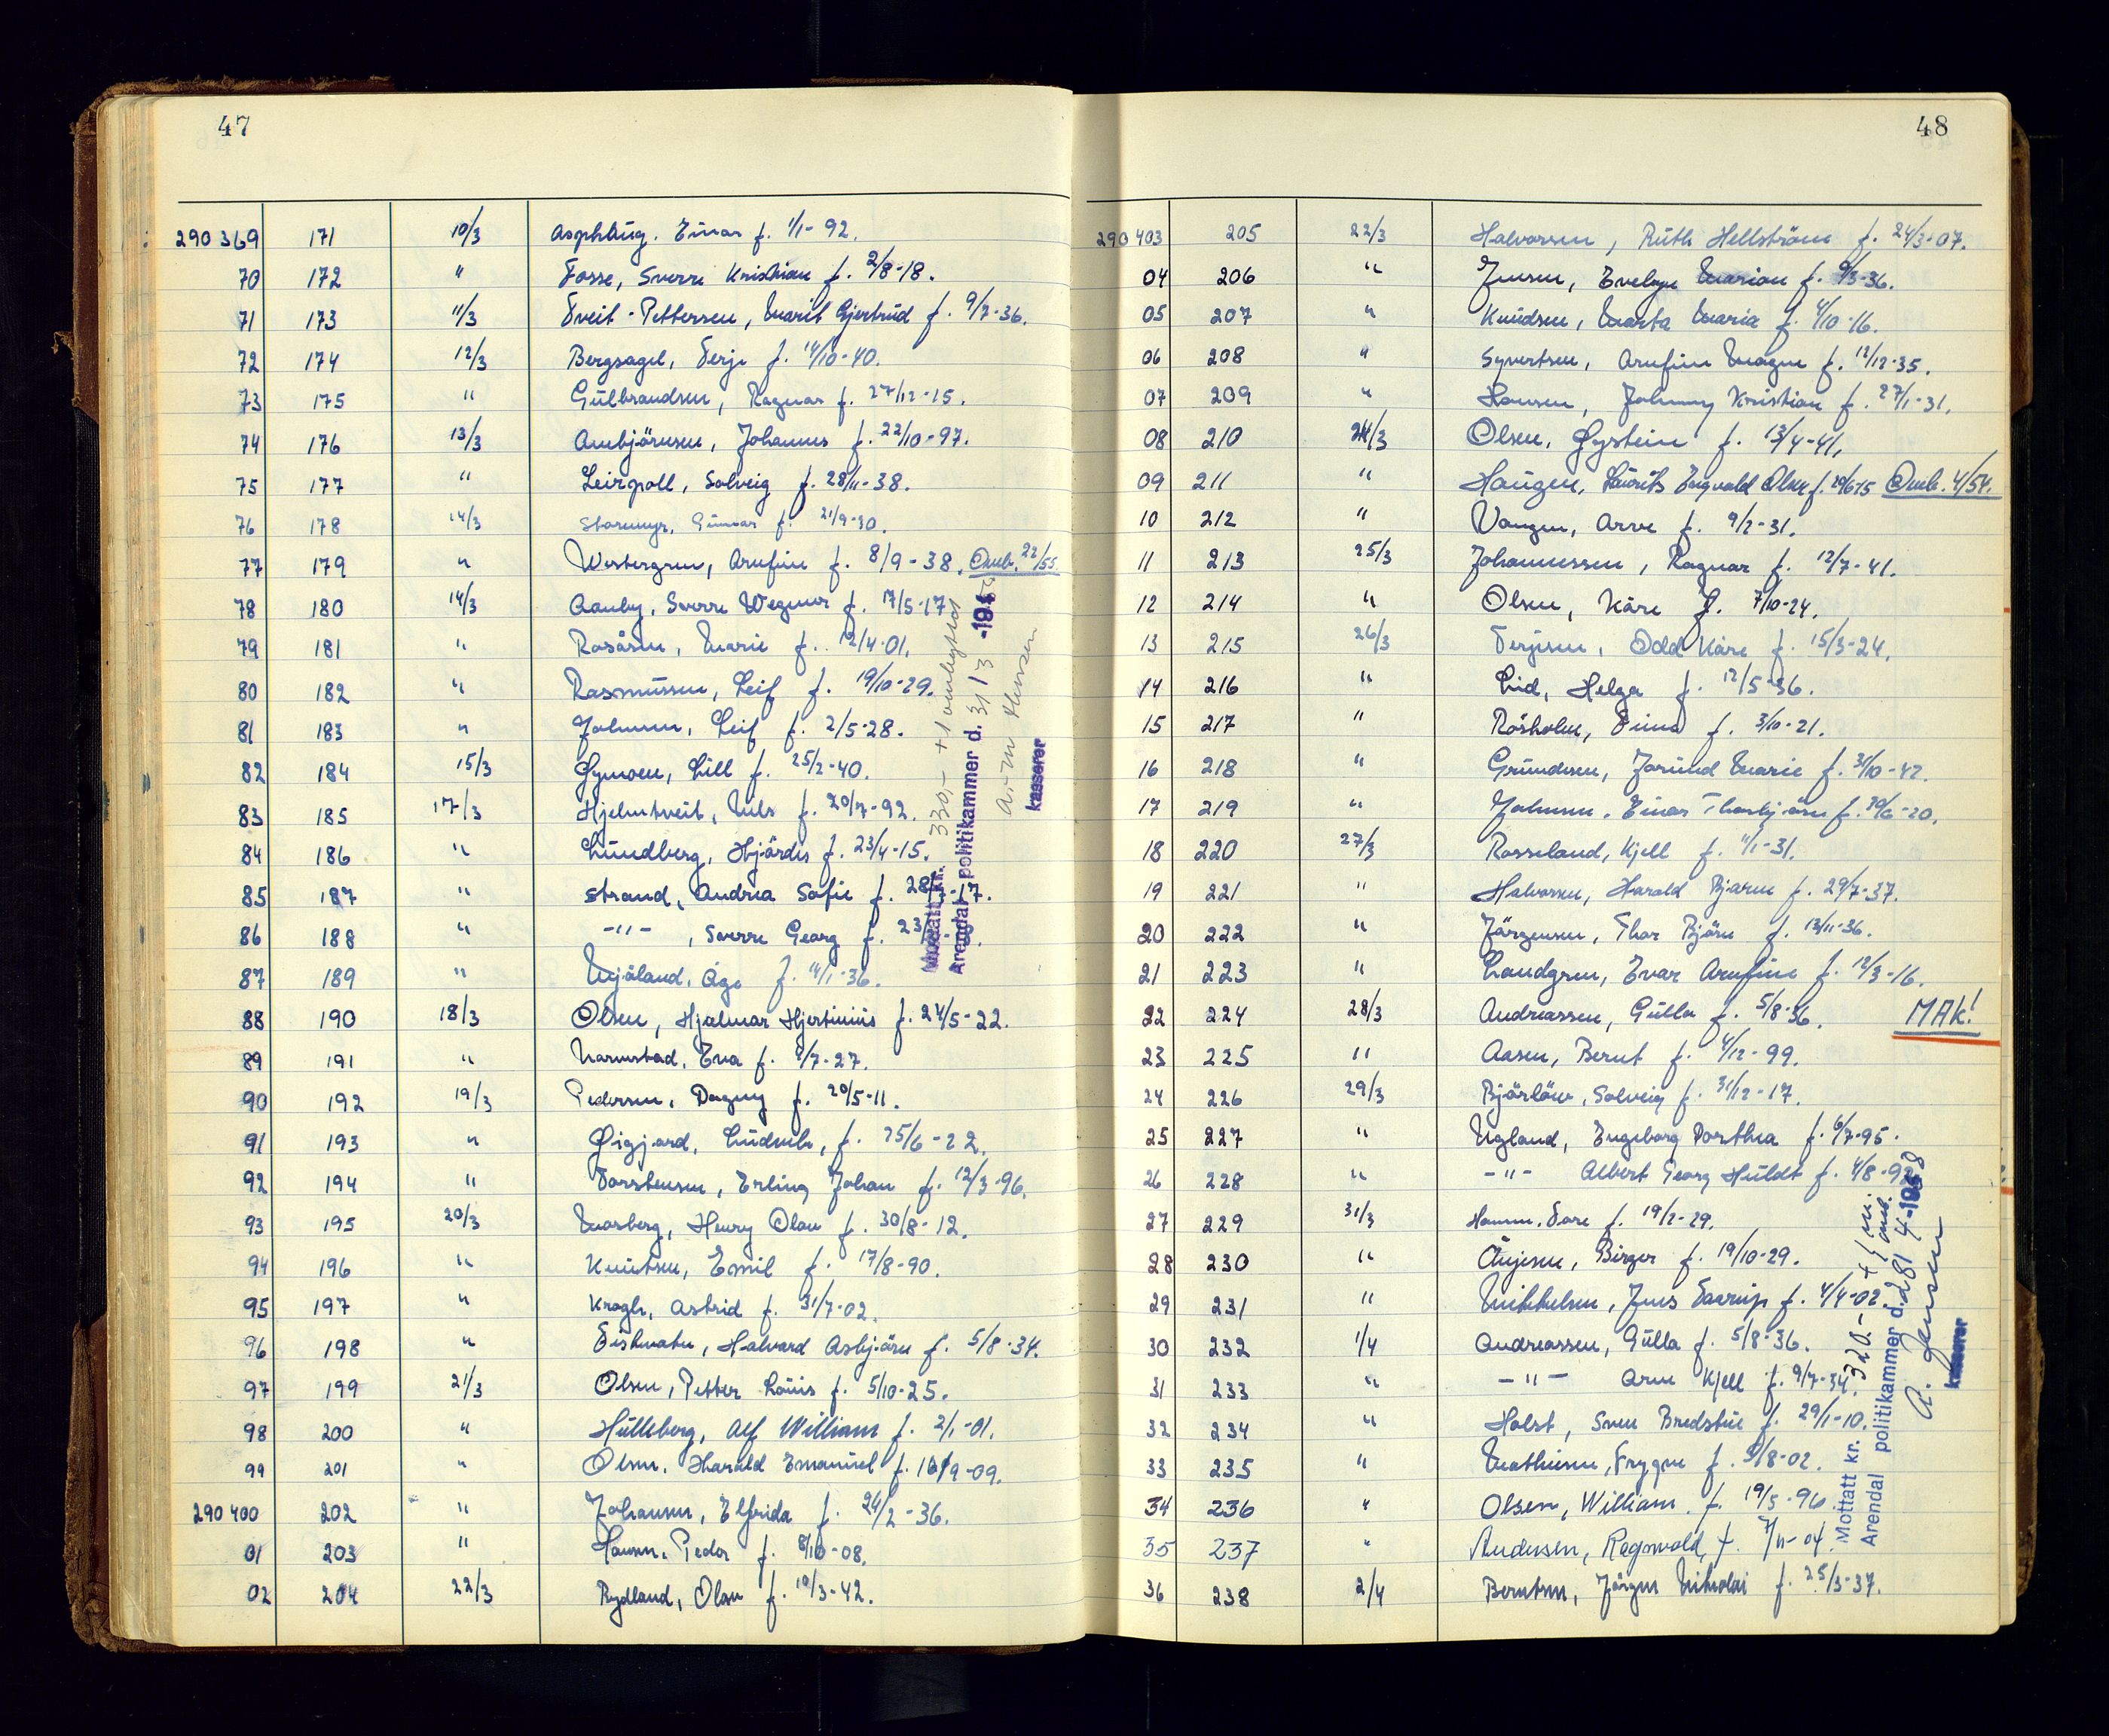 47
290 369 171 10/3 Asphaug. Einar f. 1/1-92.
70 172 " Fosse, Sverre Kristian f. 2/8-18.
71 173 11/3 Tveit-Pettersen, Marit Gjertrud f. 9/7-36.
72 174 12/3 Bergsagel, Terje f. 14/10-40.
73 175 " Gulbrandsen, Ragnar f. 27/12-15.
74 176 13/3 Ambjörnsen, Johannes f. 22/10-97.
75 177 " Leirpoll, Solveig f. 28/11-38.
76 178 14/3 Storemyr, Gunnar f. 21/9-30.
77 179 " Westergren, Arnfinn f. 8/9-38. Omb. 22/55.
78 180 14/3 Aanby, Sverre Wegner f. 17/5-17
79 181 " Rosåsen, Marie f. 12/4-01.
80 182 " Rasmussen, Leif f. 19/10-29.
81 183 " Johnsen, Leif f. 2/5-28.
82 184 15/3 Gymoen, Lill f. 25/2-40.
83 185 17/3 Hjelmtveit, Nils f. 20/7-92.
84 186 " Lundberg, Hjördis f. 23/4-15.
85 187 " Strand, Andrea Sofie f. 28/7-17.
86 188 " -"- , Sverre Georg f. 23/
87 189 " Mjåland, Åge f. 11/1-36.
88 190 18/3 Olsen, Hjalmar Hjertinius f. 24/5-22.
89 191 " Narmstad, Eva f. 8/7-27.
90 192 19/3 Pedersen, Dagny f. 20/5-11.
91 193 " Øigjard, Ludvik, f. 25/6-22.
92 194 " Torstensen, Erling Johan f. 12/3-96.
93 195 20/3 Mosberg, Henry Olav f. 30/8-12.
94 196 " Knutsen, Emil f. 17/8-90.
95 197 " Krogh, Astrid f. 31/7-02.
96 198 " Fiskvatn, Halvard Asbjörn f. 5/8-34.
97 199 21/3 Olsen, Petter Louis f. 5/10-25.
98 200 " Hulleberg, Alf William f. 2/1-01.
99 201 " Olsen, Harald Emanuel f. 16/9-09.
290 400 202 " Johansen, Elfrida f. 24/2-36.
01 203 " Hansen, Peder f. 8/10-08.
02 204 22/3 Rydland, Olav f. 10/3-42.
Mottatt kr. 330,- + 1 ombyttet
Arendal politikammer d. 31/3-195
kasserer
48
290 403 205 22/3 Halvorsen, Ruth Hellström f. 24/3-07.
04 206 " Jensen, Evelyn Marion f. 9/3-36.
05 207 " Knudsen, Marta Maria f. 4/10-16.
06 208 " Syvertsen, Arnfinn Magne f. 12/12-35.
07 209 " Hansen, Johnny Kristian f. 27/1-31.
08 210 24/3 Olsen, Øystein f. 13/4-41.
09 211 " Haugen, Laurits Ingvald Olsen f. 20/6-15 Omb. 4/54.
10 212 " Vangen, Arve f. 9/2-31.
11 213 25/3 Johannessen, Ragnar f. 12/7-41.
12 214 " Olsen, Kåre f. 7/10-24.
13 215 26/3 Terjesen, Odd Kåre f. 15/3-24.
14 216 " Lid, Helga f. 12/5-36.
15 217 " Rosholm, Einar f. 3/10-21.
16 218 " Grundesen, Jorund Marie f. 31/10-42.
17 219 " Johnsen, Einar Thorbjörn f. 30/6-20.
18 220 27/3 Rosseland, Kjell f. 11/1-31.
19 221 " Halvorsen, Harald Bjarne f. 29/7-37.
20 222 " Jörgensen, Thor Björn f. 13/11-36.
21 223 " Landgren, Evar Arnfinn f. 12/3-16.
22 224 28/3 Andreassen, Gulla f. 5/8-36. MAK!
23 225 " Aasen, Bernt f. 4/12-99.
24 226 29/3 Björlöw, Solveig f. 31/12-17.
25 227 " Ugland, Engeborg Dorthea f. 6/7-95.
26 228 " -"- Albert Georg Huldt f. 4/8-92
27 229 31/3 Hamm, Tore f. 19/2-29.
28 230 " Aujesen, Birger f. 19/10-29.
29 231 " Mikkelsen, Jens Taarup f. 4/4-02
30 232 1/4 Andreassen, Gulla f. 5/8-36.
31 233 " -"- Arne Kjell f. 9/7-34.
32 234 " Holst, Sven Bredstue f. 29/1-10.
33 235 " Mathiesen, Trygve f. 5/8-02.
34 236 " Olsen, William f. 19/5-96.
35 237 " Andersen, Ragnvald, f. 7/11-04.
36 238 2/4 Berntsen, Jörgen Nikolai f. 25/3-37.
Mottatt kr. 320.- +
Arendal politikammer d. 28/4-1958
A. Jensen
kasserer